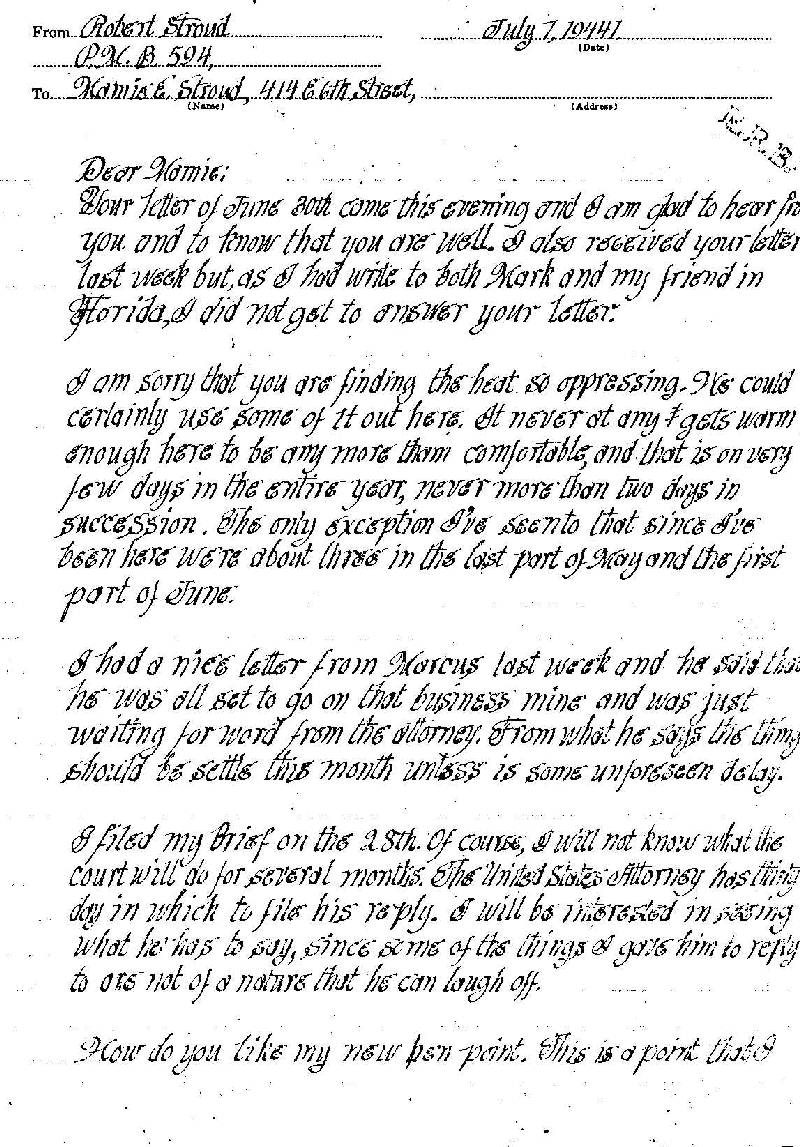 From Robert Stroud July 7, 1944.
(Date)
P.M.B. 594,
To Mamie E. Stroud, 414 E 6th Street,
(Name) (Address)
E.R.B.
Dear Mamie:
Your letter of June 30th came this evening and I am glad to hear fro
you and to know that you are well. I also received your letter
last week but, as I had write to both Mark and my friend in
Florida, I did not get to answer your letter.
I am sorry that you are finding the heat so oppressing. We could
certainly use some of it out here. It never at any t gets warm
enough here to be any more tham comfortable, and that is on very
few days in the entire year, never more than two days in
succession. The only exception I've seen to that since I've
been here were about three in the last part of May and the first
part of June.
I had a nice letter from Marcus last week and he said tha
he was all set to go on that business mine and was just
waiting for word from the attorney. From what he says the thing
should be settle this month unless is some unforeseen delay.
I filed my Brief on the 28th. Of course, I will not know what the
court will do for several months. The United States Attorney has thirty
day in which to file his reply. I will be interested in seeing
what he has to say, since some of the things I gave him to reply
to are not of a nature that he can laugh off.
How do you like my new pen point. This is a point that I